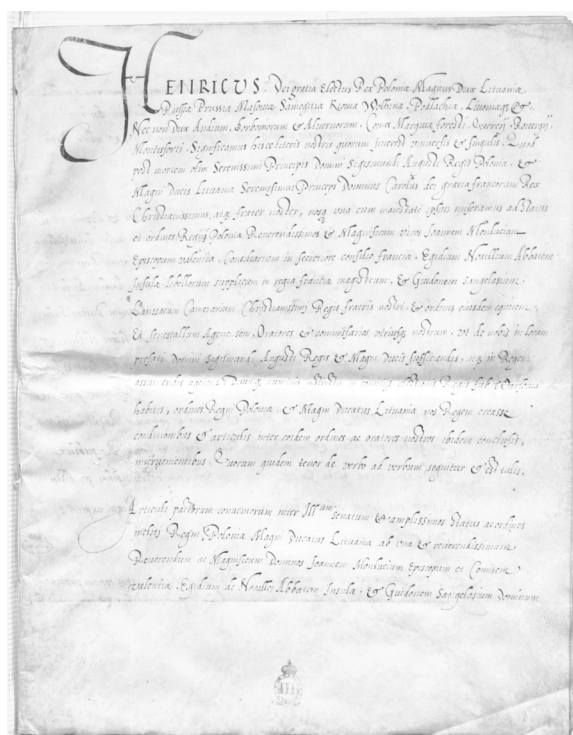 HENRICUS Dei gratia Electus Rex Poloniæ Magnus Dux Lituaniæ
Russiæ Prussiæ Masoviæ Samogitiæ Kioviæ Wolhiniæ Podlachiæ Livoniæq; &
Nec non Dux Andium Borboniorum & Alvernorum. Comes Marchiæ foresti
Montisforti. Significamus hisce literis nostris quorum interest universis & singulis. Quod
post mortem olim Serenissimi Principis Domini Sigismundi Augusti Regis Poloniæ &
Magni Ducis Lituaniæ Serenissimus Princeps Dominus Carolus dei gratia francorum Rex
Christianissimus atq; frater noster, nosq; una cum maiestate ipsius miseramus ad Status
et ordines Regni Poloniæ Reverendissimos & Magnificum viros Joannem Monlucium
Episcopum valentiæ Consiliarium in secretiore consilio franciæ Egidium Novillium Abbatem
Insulæ libellorum supplicum in regia magistrum & Guidonem Sangelasium
Lansacum Camerarium Christianissimi Regis fratris nostri & ordinis eiusdem equitem
Et Agenensem Oratores & commissarios nostros ut de nobis in locum
prefati Domini Sigismundi Augusti Regis & Magni Ducis sufficiendis atq; in Regem
assumendis agerent
habitis, ordines Regni Poloniæ & Magni Ducatus Lituaniæ nos Regem creasse
conditionibus & articulis inter eosdem ordines ac oratores nostros ibidem conclusis,
intervenientibus. Quorum quidem tenor de verbo ad verbum sequitur & est talis.
Articuli pactorum conventorum inter Ill^um senatum & amplissimos status ac ordines
inclyti Regni Poloniæ Magni Ducatus Lituaniæ ab una & reverendissimum
Reverendum ac Magnificum Dominos Joannem Monlucium Episcopum et Comitem
valentiæ Egidium de Noailles Abbatem Insulæ & Guidonem Sangelasium Dominum